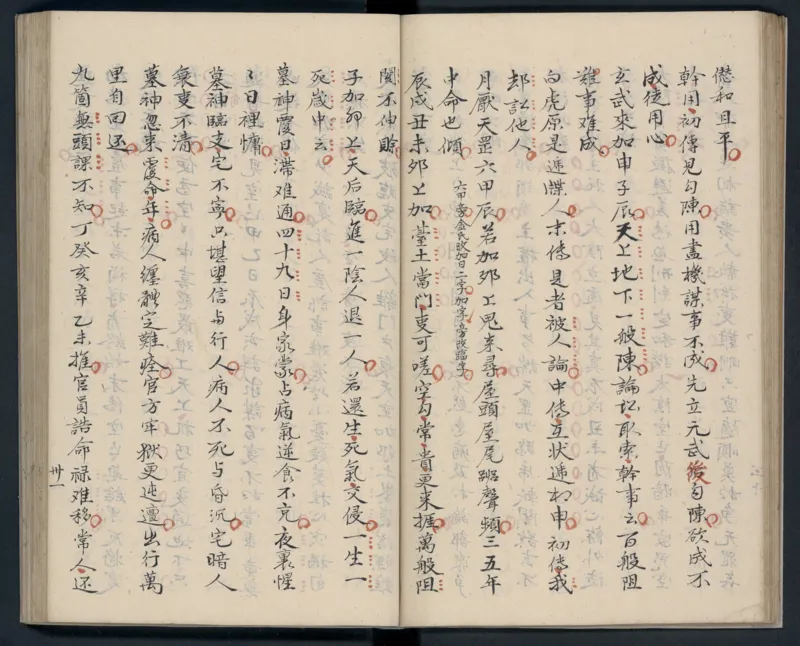 懋和且平
幹用初傳見勾陳用盡機謀事不成先立元武後勾陳欲成不
成從用心
玄武來加申子辰天上地下一般陳論訟取索幹事云百般阻
難事難成
白虎原是遞牒人末傳是者被人論中傳互狀遞相申初傳我
却訟他人
月厭天罡六甲辰若加卯上鬼来尋屋頭屋尾踏聲頻三五年
中命也傾
辰戌丑未卯上加塟土當門叓可嗟空勾常貴更来捱萬般阻
閡不伸賒
子加卯上天后臨進一陰人退一人若還生死氣交侵一生一
死歲中云
墓神覆日滯难通四十九日身家蒙占病氣逆食不充夜裏惺
々日裡慵
墓神臨支宅不寧只堪望信与行人病人不死与昏沉宅暗人
衰叓不清
墓神忽来覆命年病人纏體定難痊官方牢獄更迍邅出行萬
里有回还
九箇無頭課不知丁癸亥辛乙未推官員誥命禄难移常人还
卅一